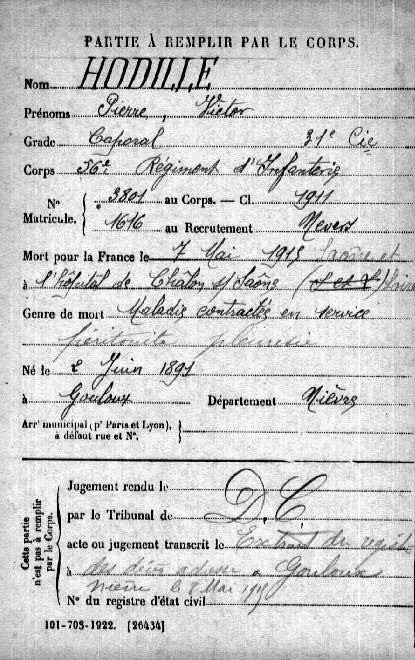 PARTIE À REMPLIR PAR LE CORPS.
Nom HODILLE
Prénoms Pierre, Victor
Grade Caporal 31e Cie
Corps 56e Régiment d'Infanterie
N° Matricule. 3801 au Corps. — Cl. 1911
1616 au Recrutement Nevers
Mort pour la France le 7 Mai 1915 Saône et
à l'hôpital de Châlon s/ Saône (S et L) Loire
Genre de mort Maladie contractée en service
péritonite pleurésie
Né le 2 Juin 1891
à Gouloux Département Nièvre
Arrt municipal (pr Paris et Lyon), à défaut rue et N°.
Cette partie n'est pas à remplir par le Corps.
Jugement rendu le
par le Tribunal de D. C
acte ou jugement transcrit le Extrait du registre
à des décès adressé à Gouloux
Nièvre le 8 Mai 1915
N° du registre d'état civil
101-708-1922. [26434]